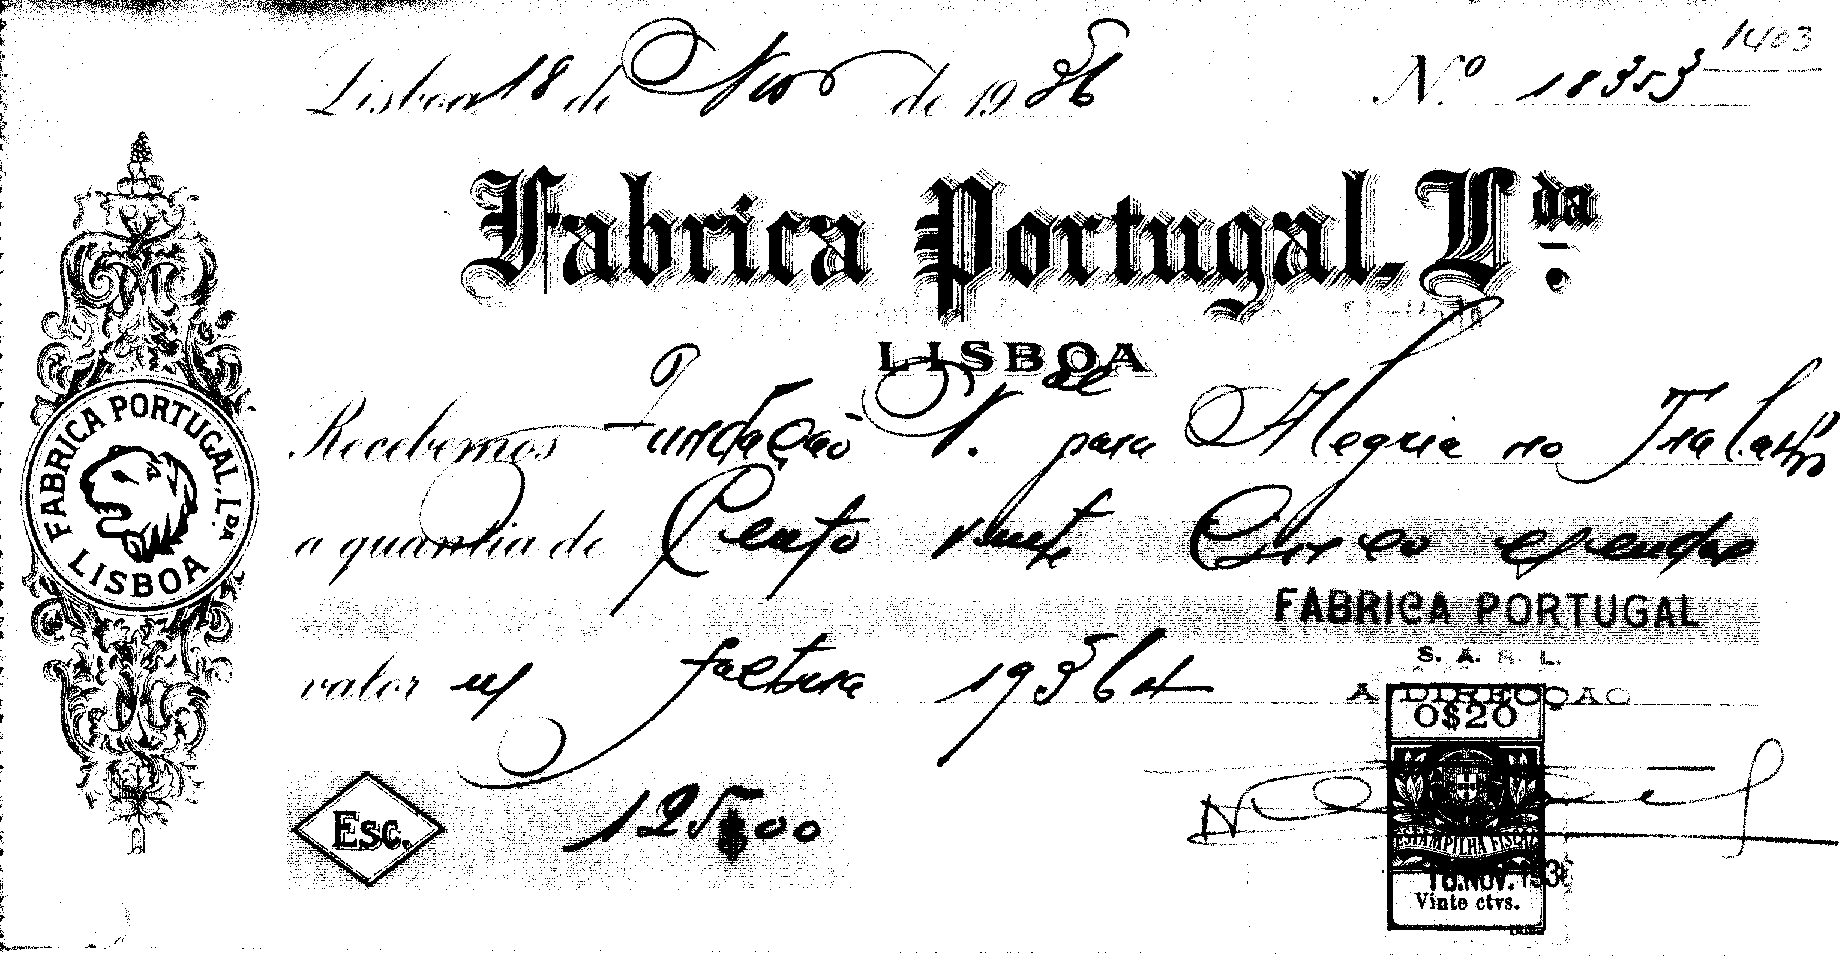 1403
Lisboa 18 de Nov de 1936 Nº 18353
Fabrica Portugal, Lda.
LISBOA
FABRICA PORTUGAL, LDA.
LISBOA
Recebemos Fundação N.al para Alegria no Trabalho
a quantia de Cento vinte Cinco escudos
FABRICA PORTUGAL
S. A. R. L.
valor n/ factura 19364
A DIRECÇAO
0$20
Esc. 125$00
ESTAMPILHA FISCAL
18.NOV.1936
Vinte ctvs.